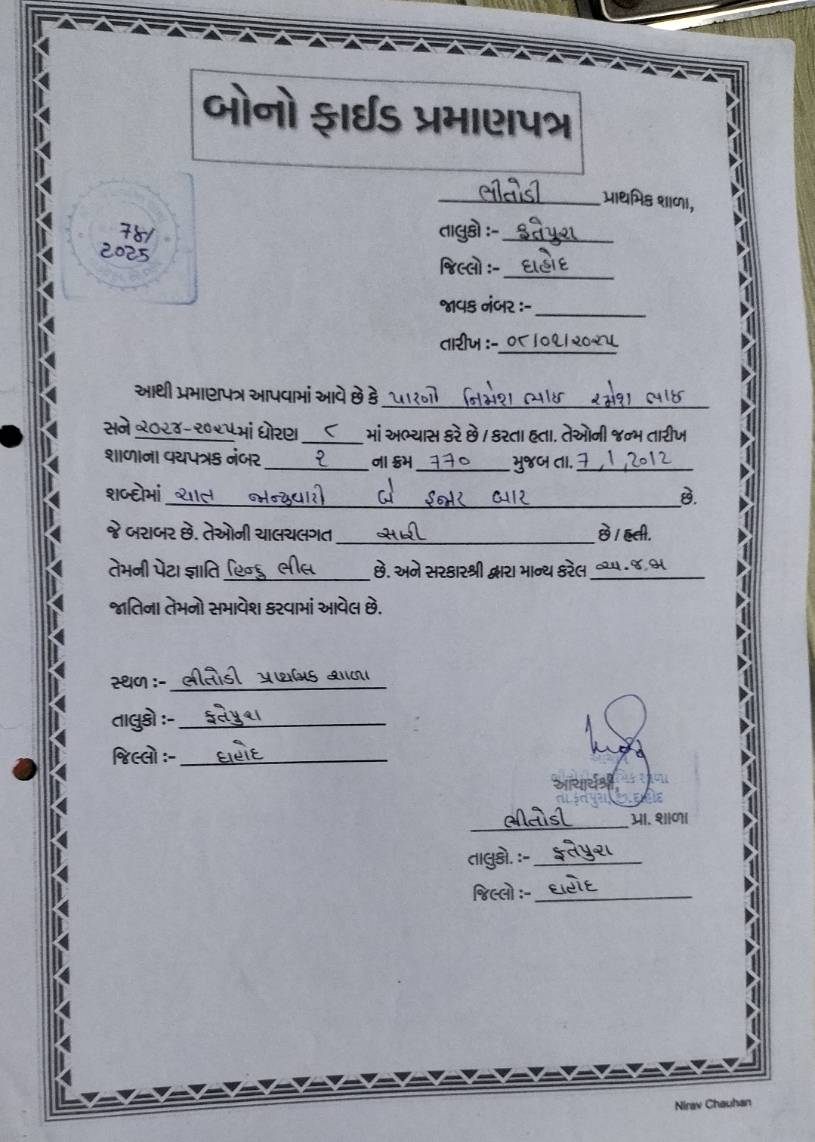 બોનો ફાઈડ પ્રમાણપત્ર
ભીતોડી પ્રાથમિક શાળા,
તાલુકો :- ફતેપુરા
જિલ્લો :- દાહોદ
જાવક નંબર :-
તારીખ :- ૦૮/૦૧/૨૦૨૫
78/
2025
આથી પ્રમાણપત્ર આપવામાં આવે છે કે પારગી નિમેશ ભાઇ રમેશ ભાઇ
સને ૨૦૨૪-૨૦૨૫માં ધોરણ ૮ માં અભ્યાસ કરે છે / કરતા હતા. તેઓની જન્મ તારીખ
શાળાના વયપત્રક નંબર ૨ ના ક્રમ 770 મુજબ તા. 7/1/2012
શબ્દોમાં સાત જાન્યુઆરી બે હજાર બાર છે.
જે બરાબર છે. તેઓની ચાલચલગત સારી છે / હતી.
તેમની પેટા જ્ઞાતિ હિન્દુ ભીલ છે. અને સરકારશ્રી દ્વારા માન્ય કરેલ અ.જ.જા
જાતિના તેમનો સમાવેશ કરવામાં આવેલ છે.
સ્થળ :- ભીતોડી પ્રાથમિક શાળા
તાલુકો :- ફતેપુરા
જિલ્લો :- દાહોદ
આચાર્યશ્રી,
તા.ફતેપુરા,જિ.દાહોદ
ભીતોડી પ્રા. શાળા
તાલુકો. :- ફતેપુરા
જિલ્લો :- દાહોદ
Nirav Chauhan